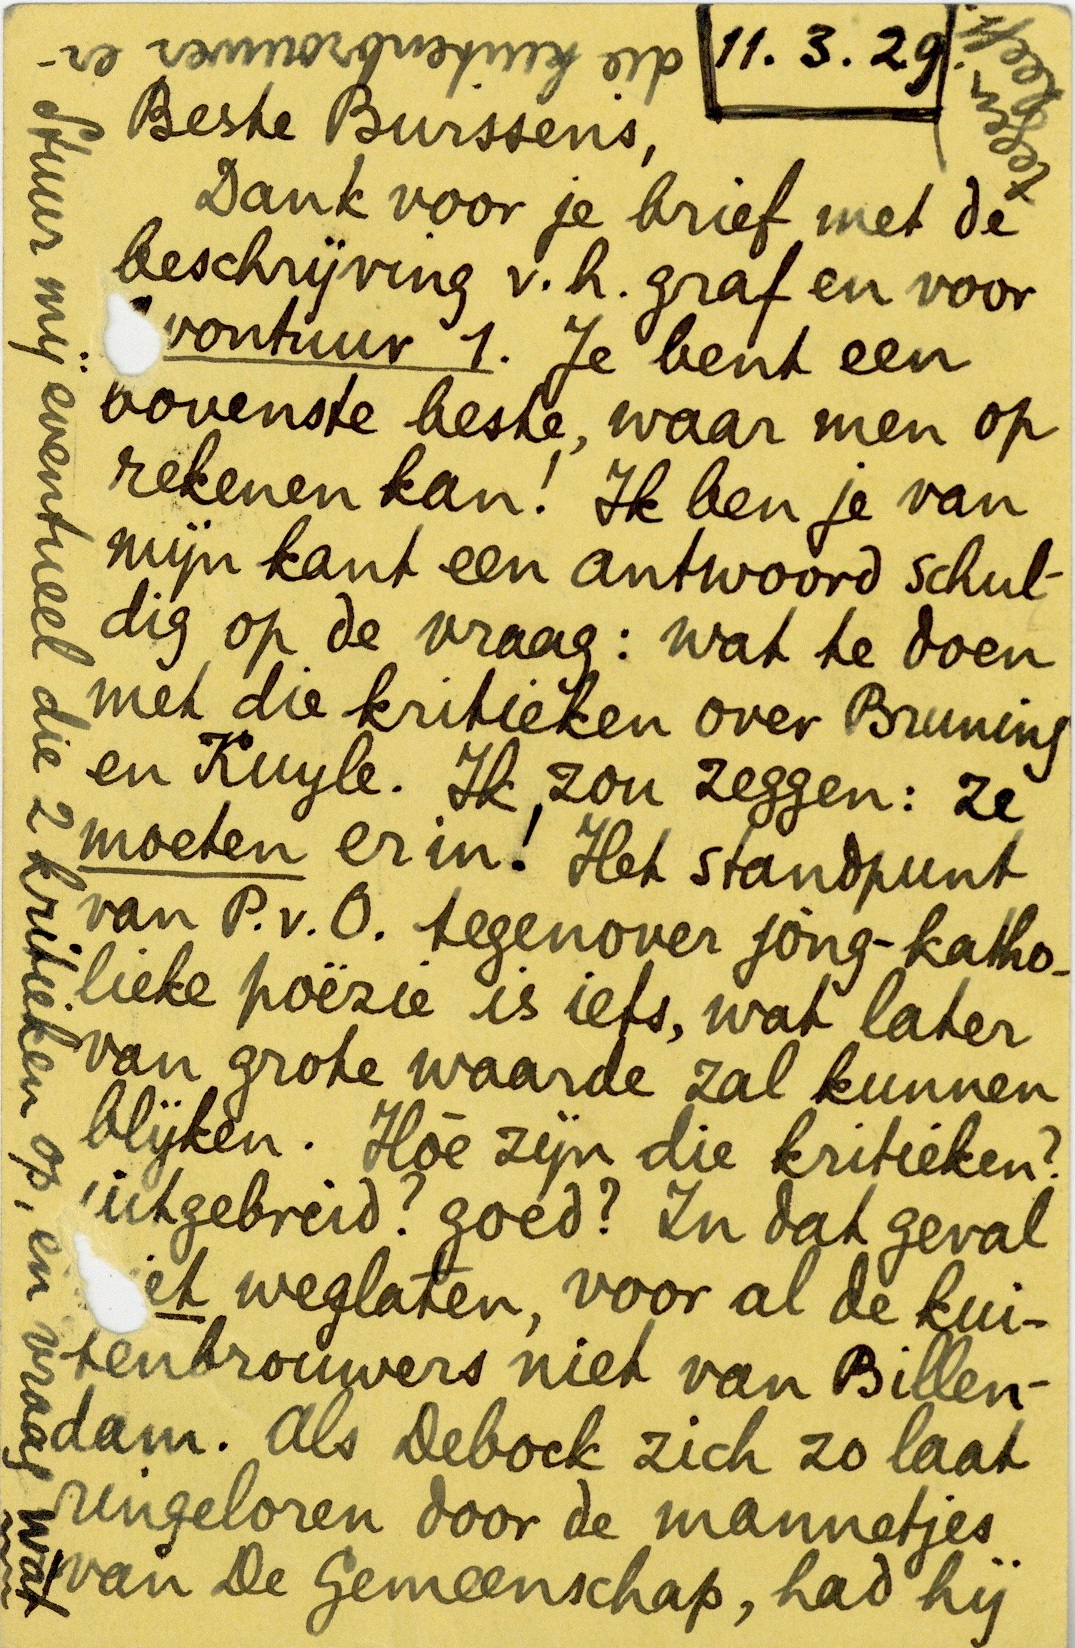 11.3.29.
Beste Burssens,
Dank voor je brief met de
beschrijving v.h. graf en voor
vontuur 1. Je bent een
bovenste beste, waar men op
rekenen kan! Ik ben je van
mijn kant een antwoord schul-
dig op de vraag: wat te doen
met die kritieken over Bruning
en Kuyle. Ik zou zeggen: ze
moeten erin! Het standpunt
van P.v.O. tegenover jong-katho-
lieke poëzie is iets, wat later
van grote waarde zal kunnen
blijken. Hōe zijn die kritieken?
uitgebreid? goed? In dat geval
et weglaten, voor al de kui-
tenbrouwers niet van Billen-
dam. Als Debock zich zo laat
ringeloren door de mannetjes
van De Gemeenschap, had hij
Stuur mij eventueel die 2 kritieken op, en vraag wat
die kuitenbrouwer er-